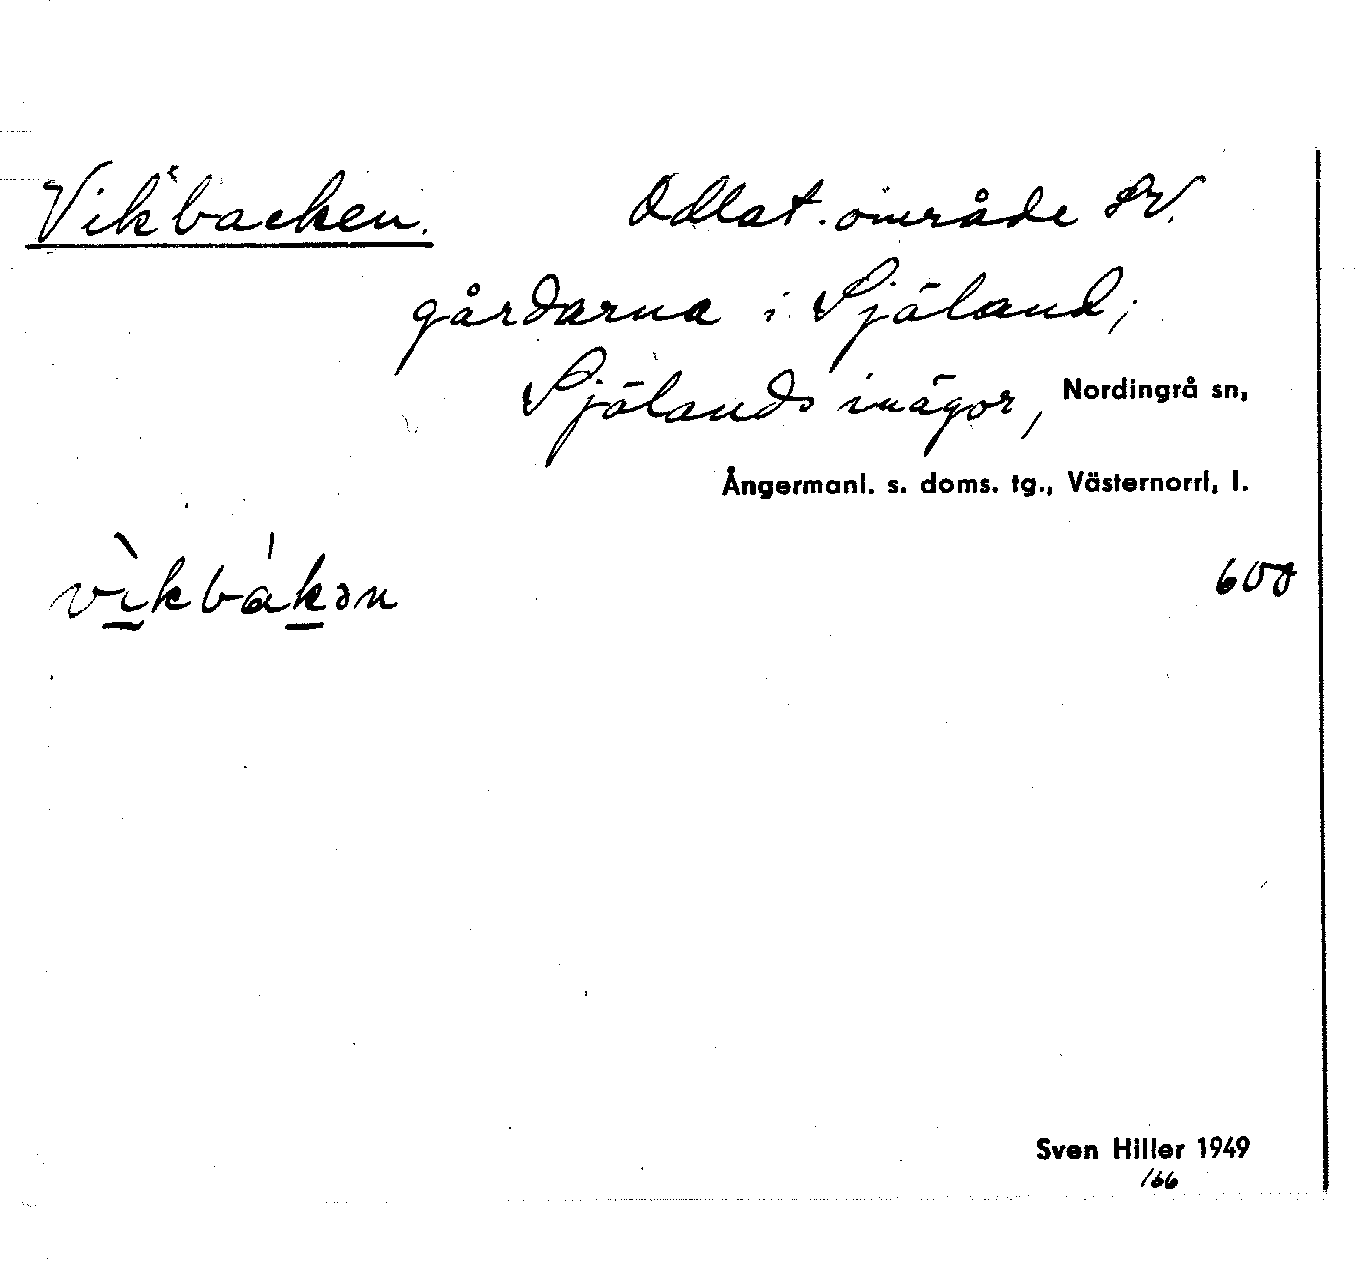 Vik'backen. Odlat område SV.
gårdarna i Själand;
Själands inägor, Nordingrå sn,
Ångermanl. s. doms. tg., Västernorrl. l.
vìkbákən 600
Sven Hiller 1949
166